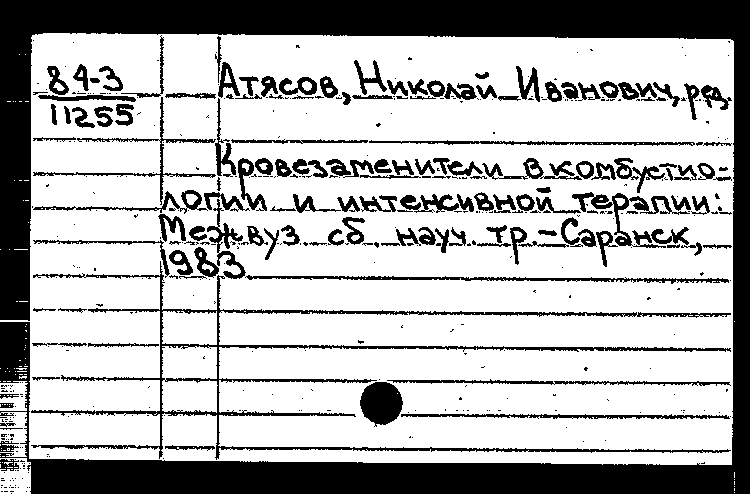 84-3
11255
Атясов, Николай Иванович, ред.
Кровезаменители в комбустио-
логии и интенсивной терапии:
Межвуз. сб. науч. тр.-Саранск,
1983.